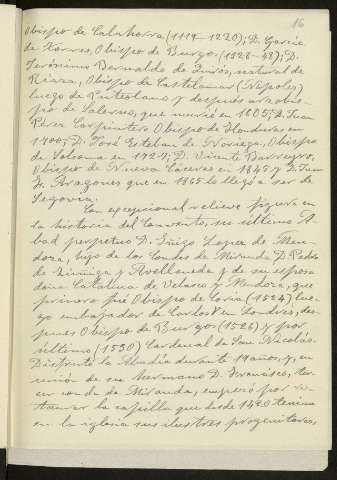 16
Obispo de Calahorra (1119-1220); D. García
de Torres, Obispo de Burgo (1328-48); D.
Jerónimo Bernaldo de Quiros, natural de
Riaza, Obispo de Castelamar (Nápoles)
luego de y después arzobis-
po de Salerno, que murió en 1605; D. Juan
Pérez Carpintero Obispo de Honduras en
1700; D. José Esteban de Noriega, Obispo
de Solsona en 1724; D. Vicente Barreyro,
Obispo de Nueva Cáceres en 1845 y D. Juan
de Aragones que en 1865 lo llegó a ser de
Segovia.
Con excepcional relieve figura en
la historia del Convento, su último A-
bad perpetuo D. Íñigo Lopez de Men-
doza, hijo de los Condes de Miranda D. Pedro
de Zúñiga y Avellaneda y de su esposa
doña Catalina de Velasco y Mendoza, que
primero fué Obispo de Coria (1524) lue-
go embajador de Carlos V en Londres, des-
pues Obispo de Burgos (1526) y por
último (1530) Cardenal de San Nicolás.
Disfrutó la Abadía durante 19 años, y, en
unión de su hermano D. Francisco, ter-
cer conde de Miranda, empezó por res-
taurar la capilla que desde 1420 tenian
en la iglesia sus ilustres progenitores,